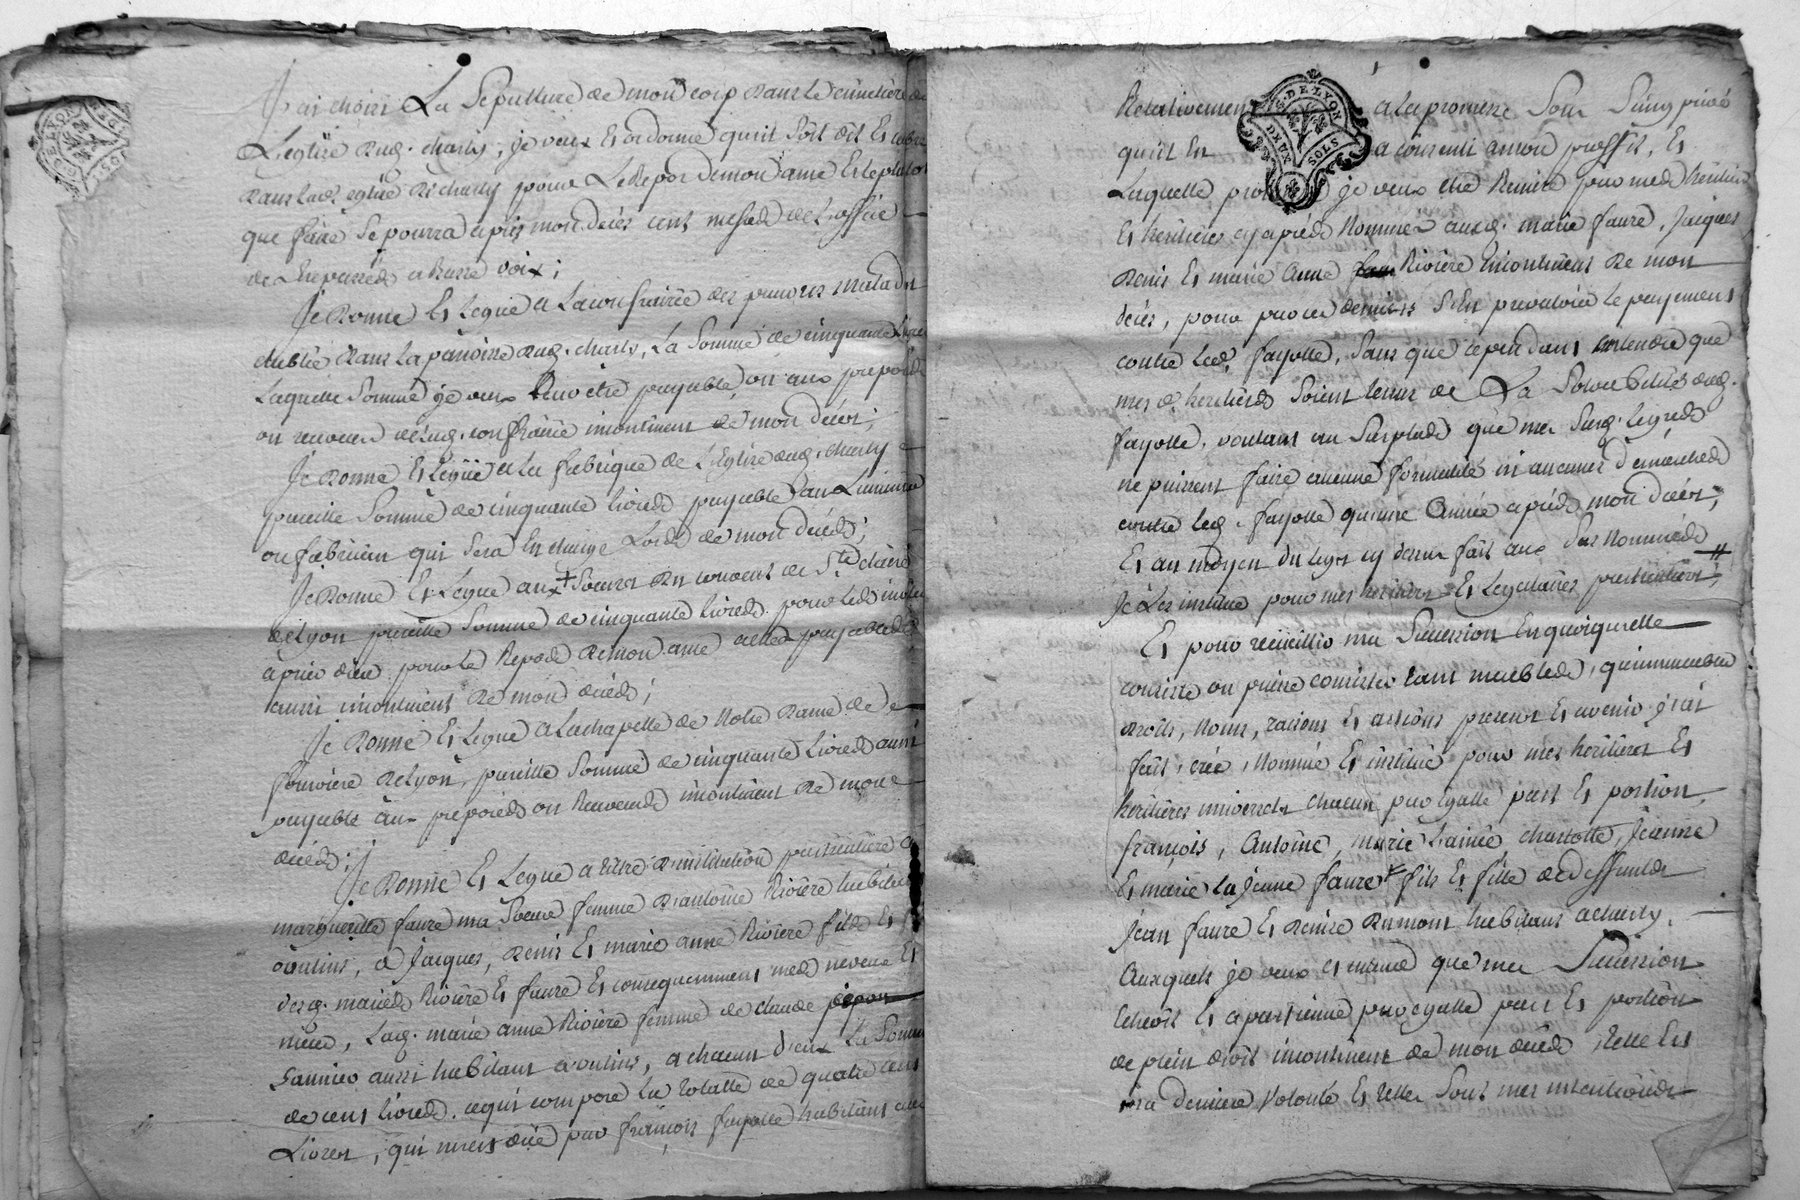 J'ai choisi La Sepulture de mon corp dans le cimetière de
L'eglise dud. charly, je veux Et ordonne qu'il soit dit Et
dans lad. eglise de charly pour Le Repos de mon ame Et le plutot
que faire se pourra après mon deces cent messes de L'office
de trepassés a basse voix;
Je Donne Et Legue a La confrairie des pauvres malades
etablie dans La paroisse dud. charly, La Somme de cinquante Livres
Laquelle Somme je veux être payable aux preposés
ou receveur de lad. confrairie incontinent de mon deces;
Je Donne Et Legue a La fabrique de L'Eglise dud. charly
pareille Somme de cinquante livres payable au Luminier
ou fabricien qui Sera En charge Lors de mon deces;
Je Donne Et Legue aux + Soeurs du couvent de Ste claire
de Lyon pareille Somme de cinquante livres pour les inviter
a prier dieu pour le Repos de mon ame a elles payables
aussi incontinent de mon deces;
Je Donne Et Legue a La chapelle de Notre Dame de
fourviere de Lyon, pareille Somme de cinquante Livres aussi
payable aux preposés ou Receveurs incontinent de mon
deces;
Je Donne Et Legue a titre d'institution particuliere a
marguerite faure ma Soeur femme d'antoine Rivière habitant
a oulins, a Jacques, denis Et marie anne Rivière fils Et
desd. mariés Rivière Et faure Et consequemment mes neveux Et
niece, Lad. marie anne Rivière femme de claude
Sannier aussi habitant a oulins, a chacun d'eux La Somme
de cent livres, ce qui compose La totalle de quatre cens
Livres, qui m'est düe par françois fayolle habitant
Relativement a la promesse Sous Seing privé
qu'il En a consenti a mon proffit, Et
Laquelle je veux être Remise par mes héritiers
Et héritières cy après Nommés auxd. marie faure, Jacques
denis Et marie anne Rivière incontinent de mon
deces, pour par ces derniers S'en prevaloir Le payement
contre Led. fayolle, Sans que cependant entendre que
mes d. heritiers Soient tenus de La Solvabilité dud.
fayolle, voulant au Surplus que mes Susd. legués
ne puissent faire aucune formalité ni aucunes démarches
contre Led. fayolle qu'une Année après mon deces;
Et au moyen du legs cy dessus fait aux Sus Nommés
Je Les institue pour mes heritiers Et Legataires particuliers;
Et pour recüeillir ma Succession En quoi qu'elle
consiste ou puisse consister tant meubles, qu'immeubles
droits, Noms, raisons Et actions presents Et avenir j'ai
fait, créé, Nommé Et institué pour mes heritiers Et
heritières universels chacun par egalle part Et portion,
françois, Antoine, marie L'ainée, charlotte, Jeanne
Et marie La jeune faure fils Et fille de deffunts
Jean faure Et denise Dumont habitans a charly.
Auxquels je veux Et entend que ma Succession
Echoit Et apartienne par egalle part Et portion
de plein droit incontinent de mon deces, telle Est
ma derniere Volonté Et telles Sont mes intentions
G. DE LYON
SOLS